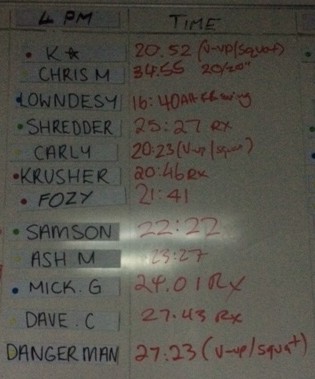 4 PM TIME
K☆ 20.52 (V-up/squat)
CHRIS M 34:55 20/20"
LOWNDESY 16:40
SHREDDER 25:27 RX
CARLY 20:23 (V-up/squat)
KRUSHER 20:46 RX
FOZY 21:41
SAMSON 22:22
ASH M 23:27
MICK.G 24.01 RX
DAVE.C 27.43 RX
DANGERMAN 27:23 (V-up/squat)